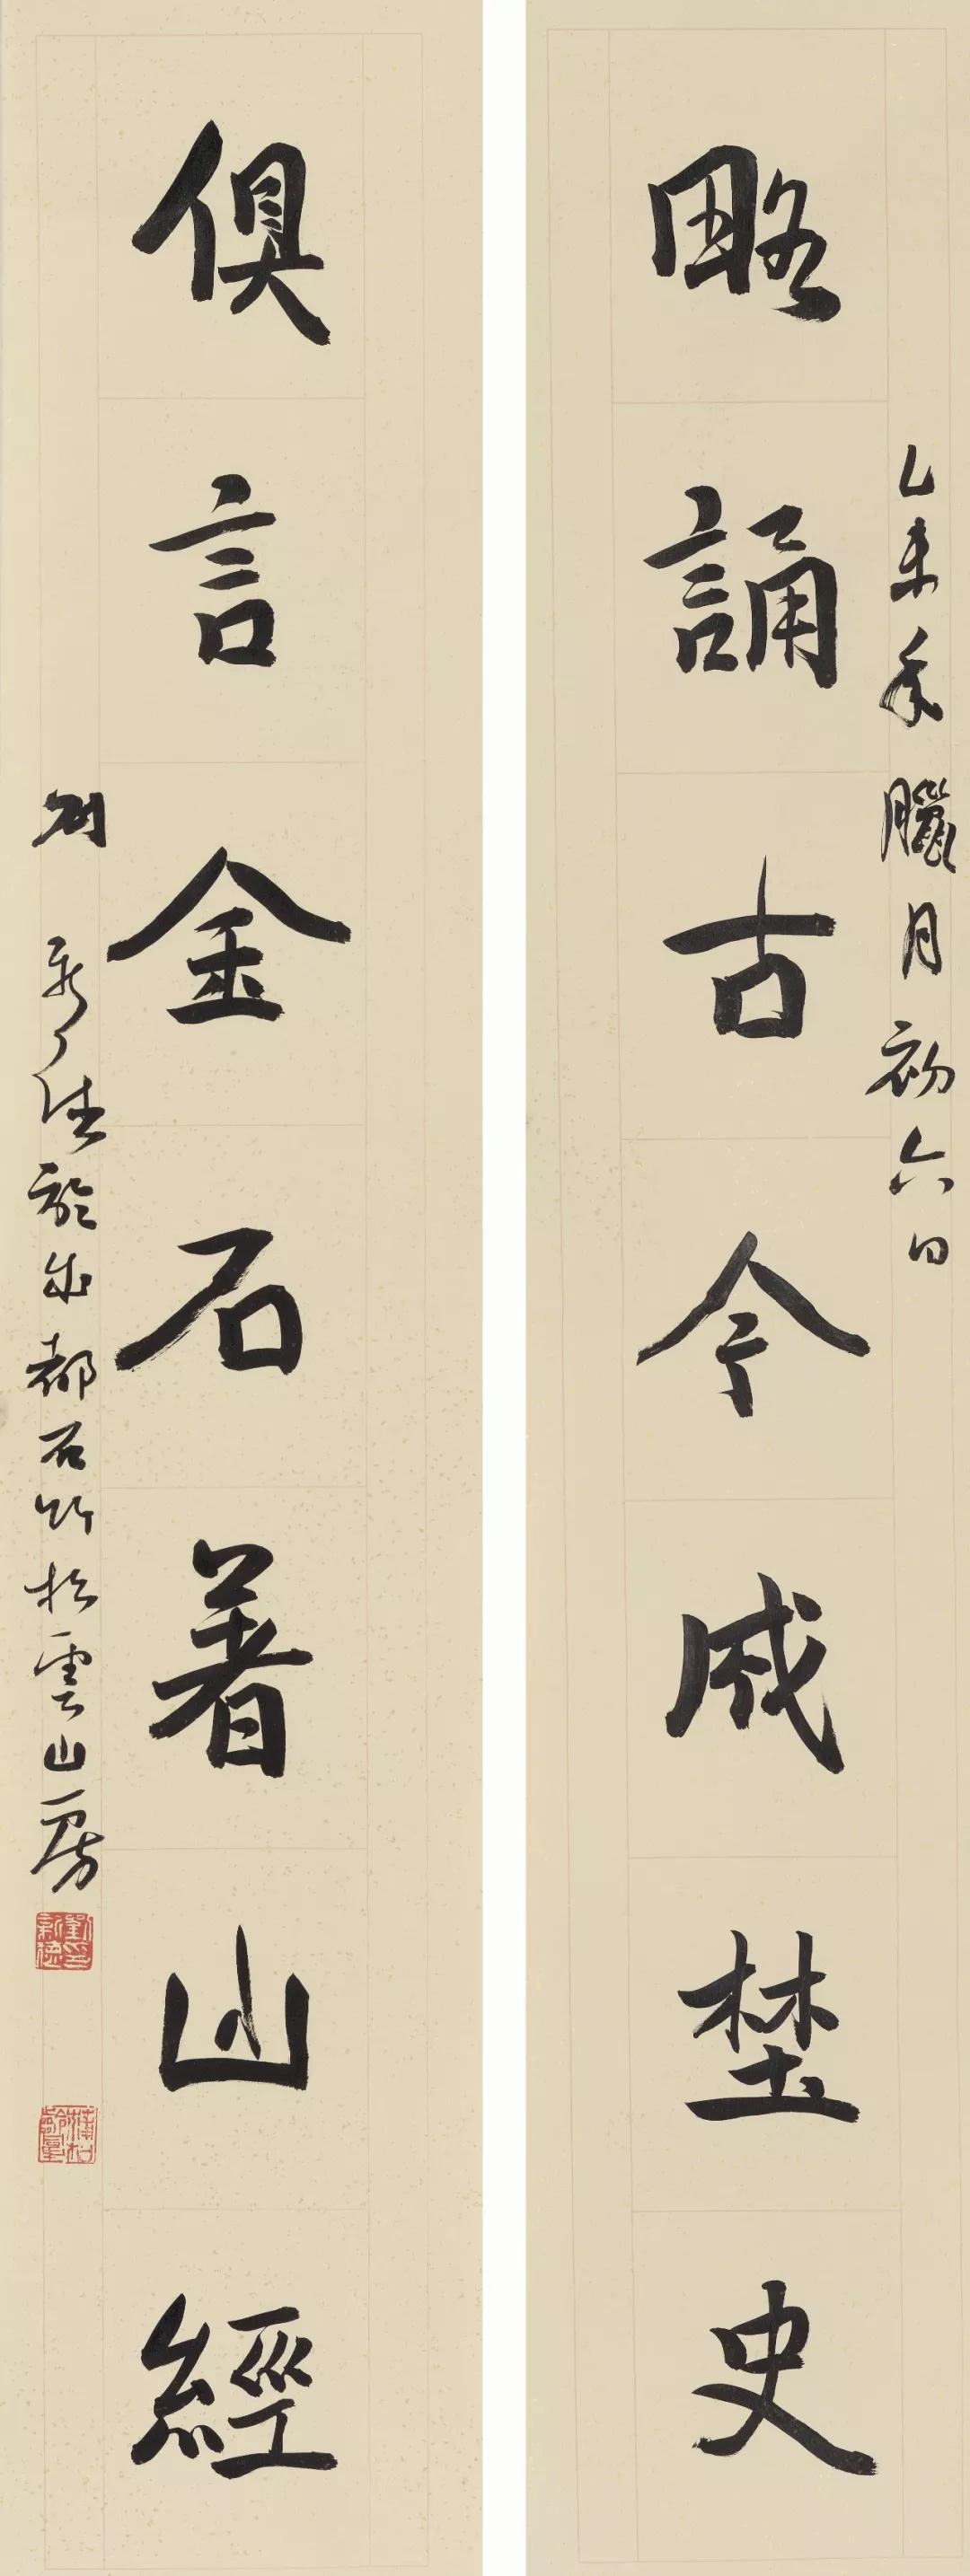 乙未年臘月初六日
略誦古今成埜史
俱言金石著山經
刘新德於成都石竹松雲山房
劉新德印